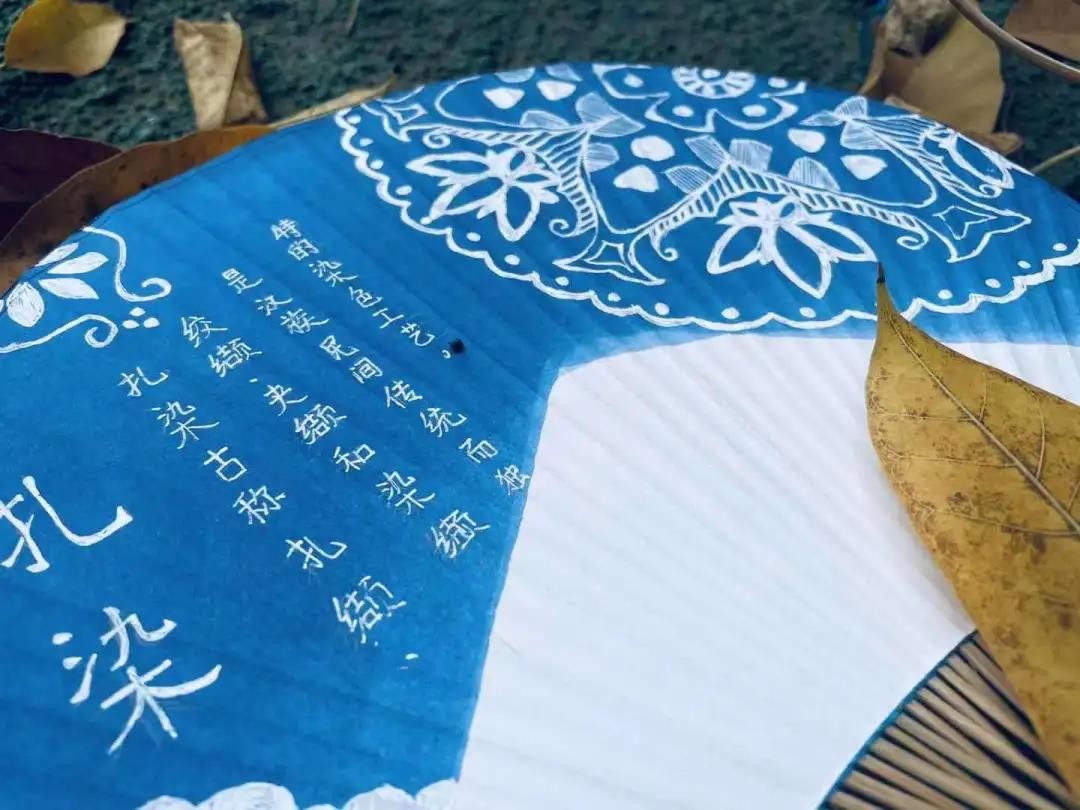 扎染
扎染古称扎缬、
绞缬、夹缬和染缬
是汉族民间传统而独
特的染色工艺。